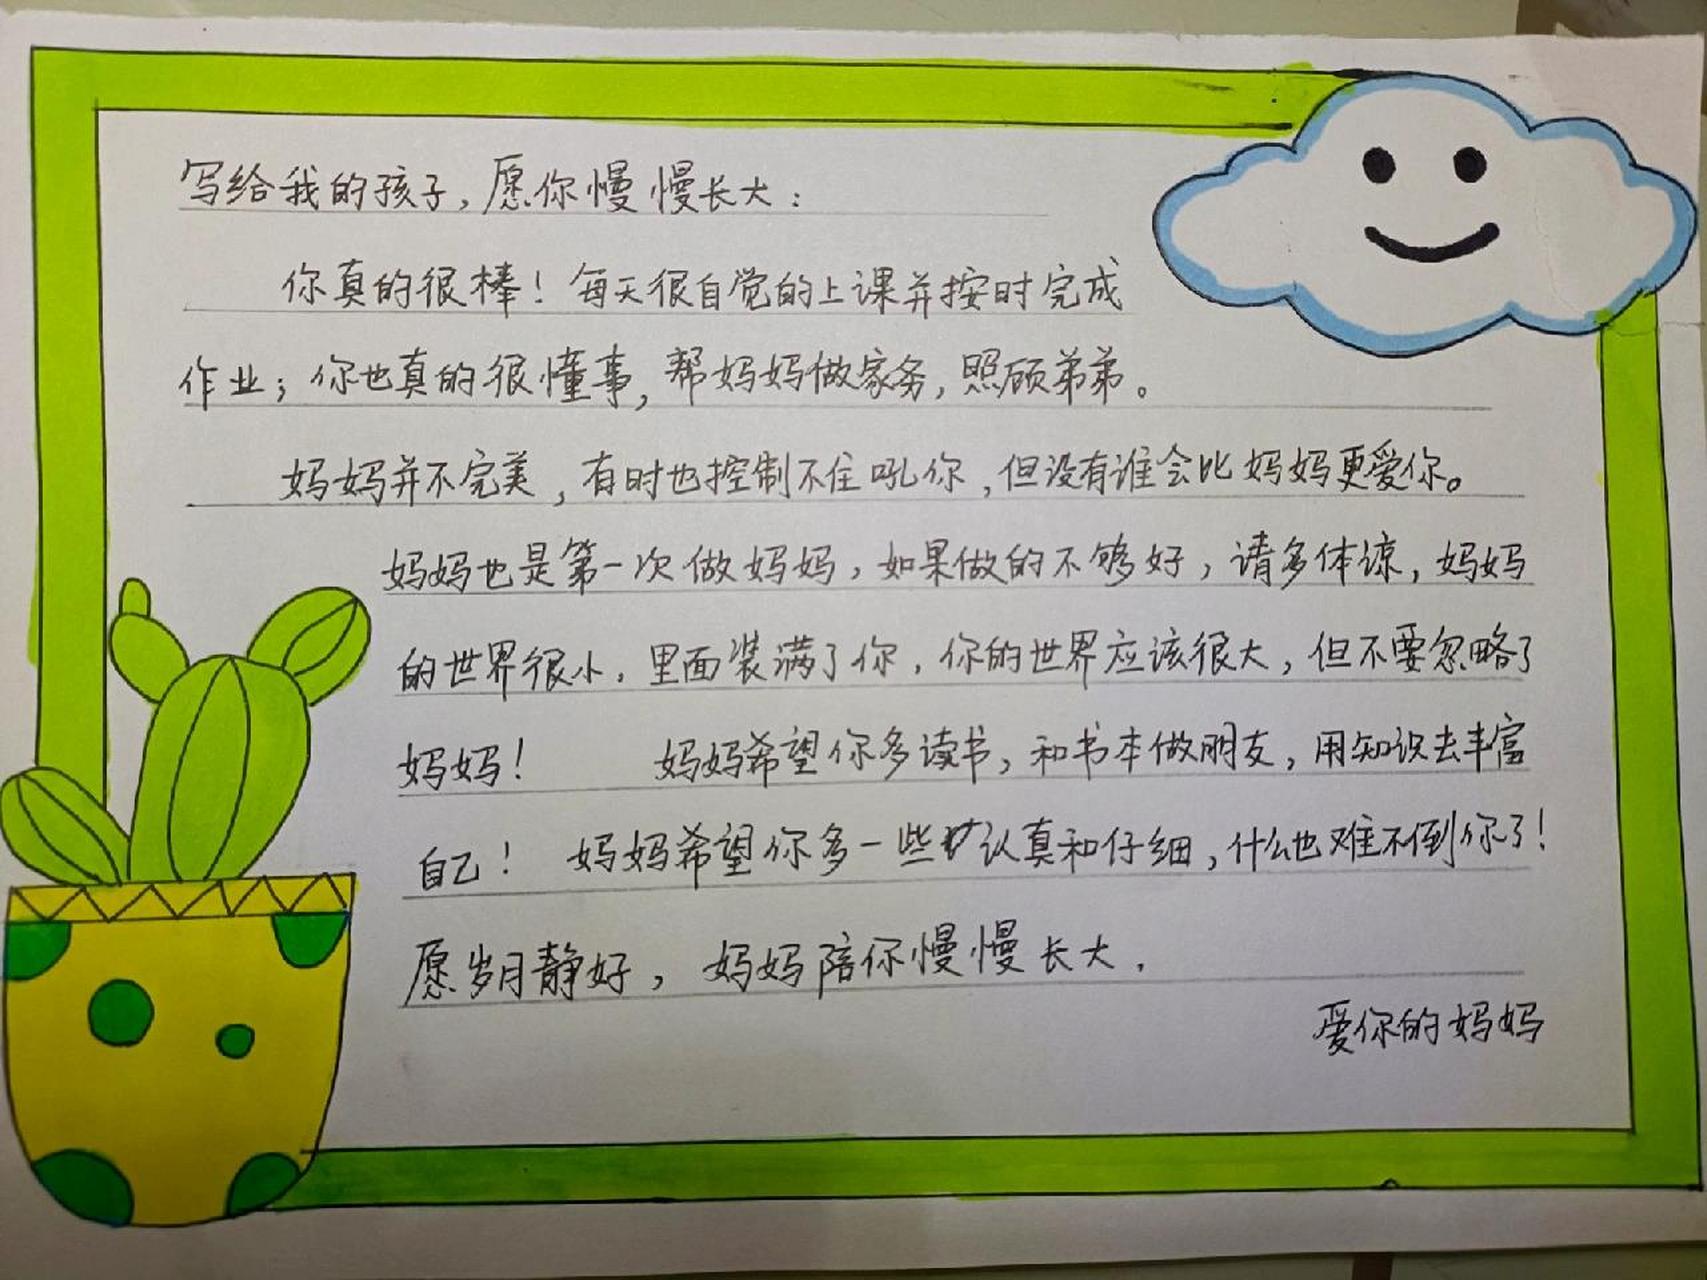 写给我的孩子，愿你慢慢长大：
你真的很棒！每天很自觉的上课并按时完成
作业；你也真的很懂事，帮妈妈做家务，照顾弟弟。
妈妈并不完美，有时也控制不住吼你，但没有谁会比妈妈更爱你。
妈妈也是第一次做妈妈，如果做的不够好，请多体谅，妈妈
的世界很小，里面装满了你，你的世界应该很大，但不要忽略了
妈妈！ 妈妈希望你多读书，和书本做朋友，用知识去丰富
自己！ 妈妈希望你多一些认真和仔细，什么也难不倒你了！
愿岁月静好，妈妈陪你慢慢长大，
爱你的妈妈